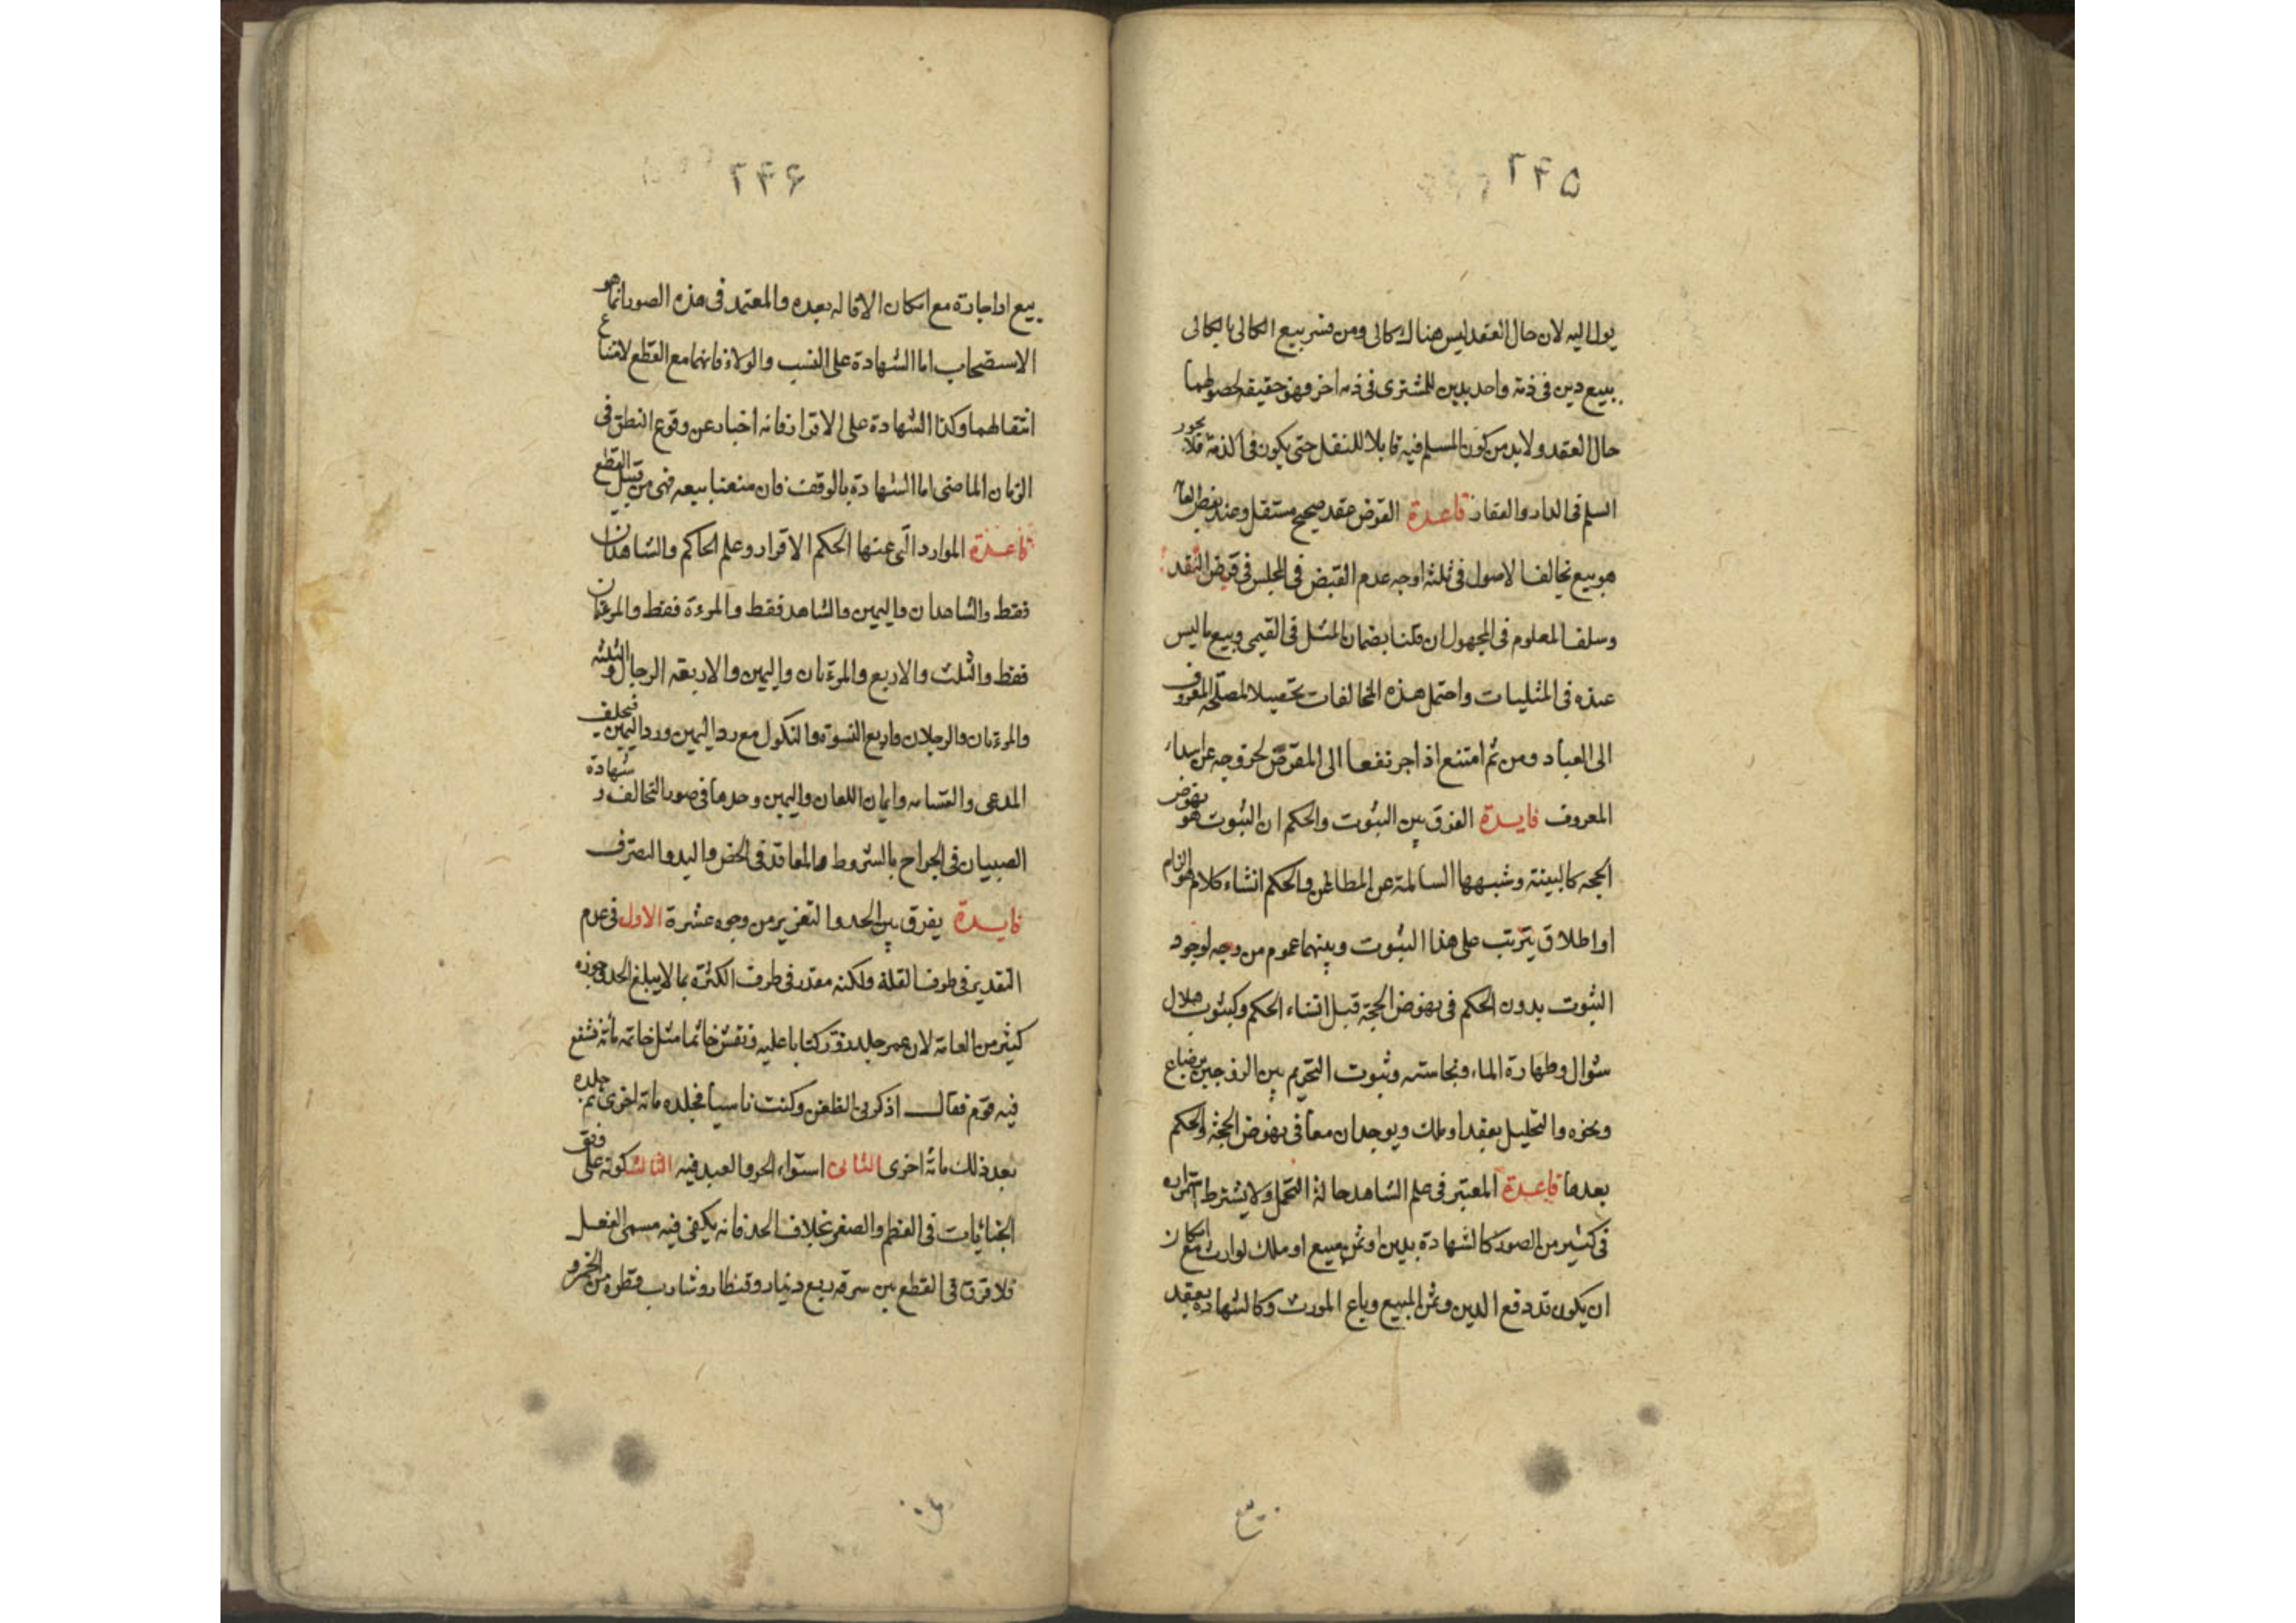 ۲۴۵
يول اليه لان حال العقد ليس هناك كالى ومن فسر بيع الكالى بالكالى
ببيع دين فى ذمة واحد بدين للمشترى فى ذمه اخر فهو حقيقه لحصولهما
حال العقد ولابد من كون المسلم فيه قابلا للنقل حتى يكون فى الذمة فلا يجوز
السلم فى الدار والعقار قاعدة القرض عقد صحيح مستقل وعند بعض العامة
هو بيع تخالف الاصول فى ثلثه اوجه عدم القبض فى المجلس فى قرض النقد
وسلف المعلوم فى المجهول ان قلنا بضمان المثل فى القيمى وبيع ما ليس
عنده فى المثليات واحتمل هذه المخالفات تحصيلا لمصلحة المعروف
الى العباد ومن ثم امتنع اذا جر نفعا الى المقرض لخروجه عن اسداء
المعروف فايدة الفرق بين الثبوت والحكم ان الثبوت هو نهوض
الحجه كالبينة وشبهها السالمة عن المطاعن والحكم انشاء كلام هو الزام
او اطلاق يترتب على هذا الثبوت وبينهما عموم من وجه لوجود
الثبوت بدون الحكم فى نهوض الحجة قبل انشاء الحكم وكثبوت هلال
شوال وطهارة الماء ونجاسته وثبوت التحريم بين الزوجين برضاع
ونحوه والتحليل بعقد او ملك ويوجدان معا فى نهوض الحجة والحكم
بعدها قاعدة المعتبر فى علم الشاهد حالة التحمل ولا يشترط استمراره
فى كثير من الصور كالشهادة بدين او ثمن مبيع او ملك لوارث مع امكان
ان يكون قد دفع الدين وثمن المبيع وباع المورث وكالشهادة بعقد
بيع
۲۴۶
بيع او اجارة مع امكان الاقاله بعده والمعتمد فى هذه الصور انما هو
الاستصحاب اما الشهادة على النسب والولاء فانها مع القطع لامتناع
انتقالهما وكذا الشهادة على الاقرار فانه اخبار عن وقوع النطق فى
الزمان الماضى اما الشهادة بالوقف فان منعنا بيعه فهى من قبيل القطع
قاعدة الموارد التى عنها الحكم الاقرار وعلم الحاكم والشاهدان
فقط والشاهدان واليمين والشاهد فقط والمرءة فقط والمرءتان
فقط والثلث والاربع والمرءتان واليمين والاربعه الرجال والثلثه
والمرءتان والرجلان واربع النسوة والنكول مع رد اليمين ورد اليمين فيحلف
المدعى والقسامه وايمان اللعان واليمين وحدها فى صور التخالف وشهادة
الصبيان فى الجراح بالشروط والمعاقد فى الخص واليد والتصرف
فايدة يفرق بين الحد والتعزير من وجوه عشرة الاول فى عدم
التقدير فى طرف القلة ولكنه مقدر فى طرف الكثرة بما لا يبلغ الحد وجوزه
كثير من العامة لان عمر جلد من زور كتابا عليه ونقش خاتما مثل خاتمه مائة فشفع
فيه قوم فقال اذكرونى الطعن وكنت ناسيا فجلده مائة اخرى ثم جلده
بعد ذلك مائة اخرى الثانى استواء الحر والعبد فيه الثالث كونه على وفق
الجنايات فى العظم والصغر بخلاف الحد فانه يكفى فيه مسمى الفعل
فلا فرق فى القطع بين سرقه ربع دينار وقنطار وشارب قطرة من الخمر و